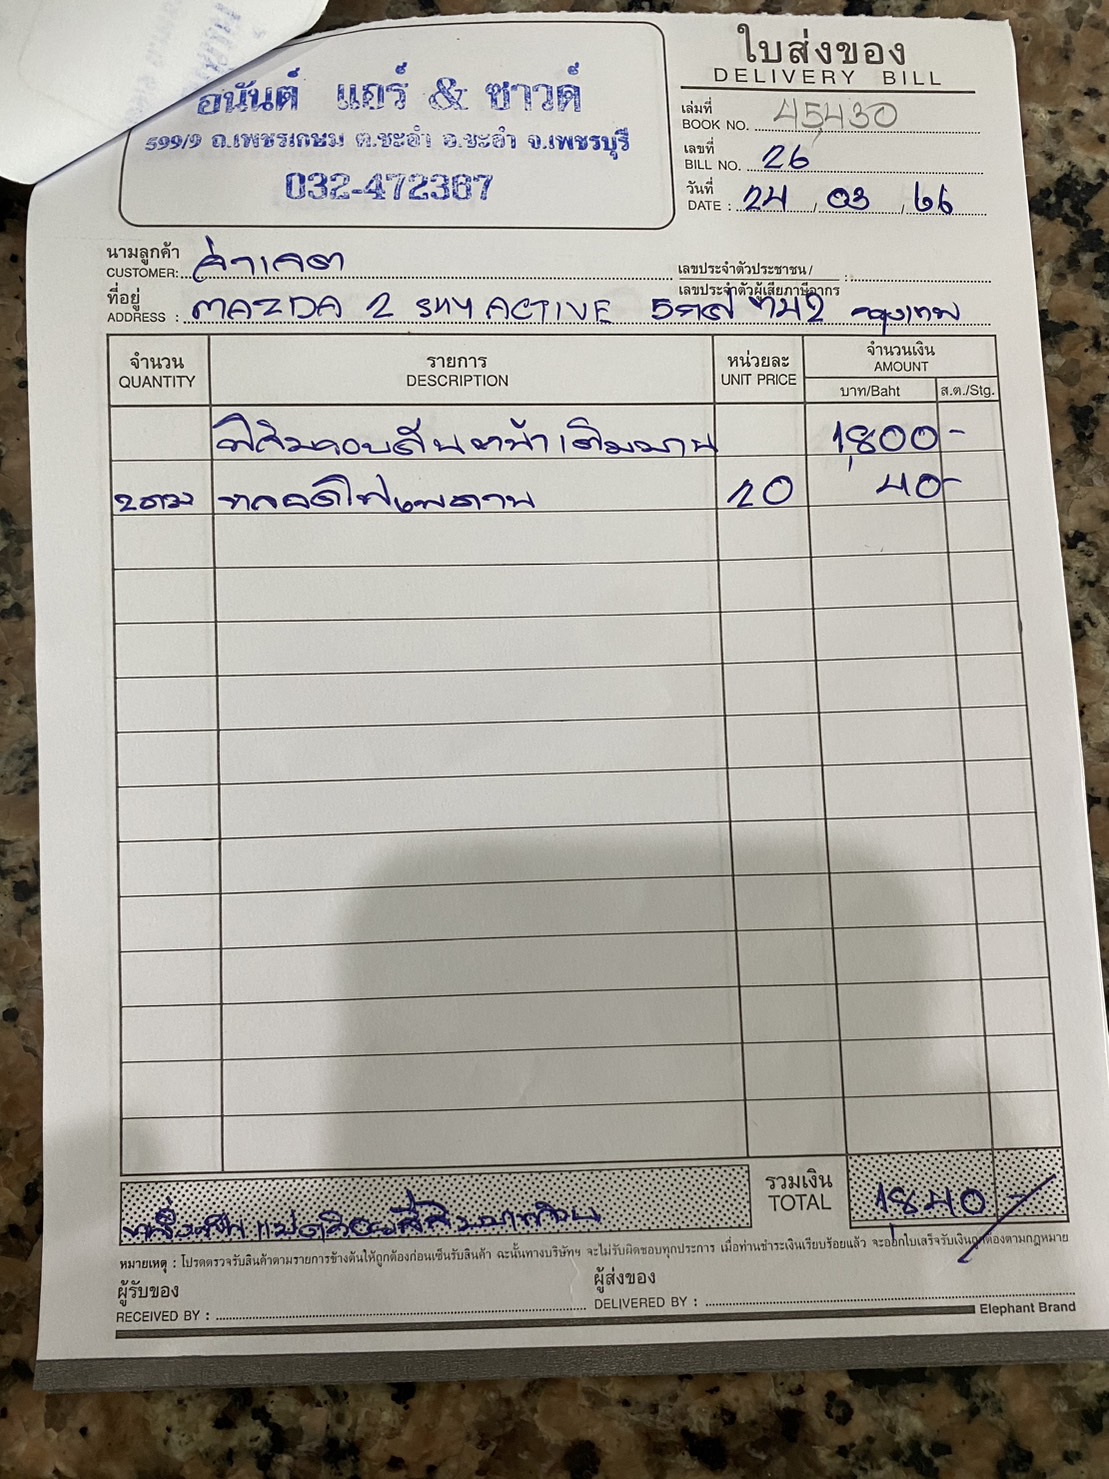 ใบส่งของ
DELIVERY BILL
อนันต์ แอร์ & ซาวด์
599/9 ถ.เพชรเกษม ต.ชะอำ อ.ชะอำ จ.เพชรบุรี
032-472367
เล่มที่
BOOK NO. 45,430
เลขที่
BILL NO. 26
วันที่
DATE : 24 / 03 / 66
นามลูกค้า
CUSTOMER:
เลขประจำตัวประชาชน / :
เลขประจำตัวผู้เสียภาษีอากร
ที่อยู่
ADDRESS : MAZDA 2 SKY ACTIVE กรุงเทพ
จำนวน รายการ หน่วยละ จำนวนเงิน
QUANTITY DESCRIPTION UNIT PRICE AMOUNT
บาท/Baht ส.ต./Stg.
ฟิล์มกรองแสงหน้าเต็มบาน 1,800 -
2 ดวง หลอดไฟเพดาน 20 40 -
รวมเงิน
TOTAL 1,840 -
หมายเหตุ : โปรดตรวจรับสินค้าตามรายการข้างต้นให้ถูกต้องก่อนเซ็นรับสินค้า ฉะนั้นทางบริษัทฯ จะไม่รับผิดชอบทุกประการ เมื่อท่านชำระเงินเรียบร้อยแล้ว จะออกใบเสร็จรับเงินถูกต้องตามกฎหมาย
ผู้รับของ ผู้ส่งของ
RECEIVED BY : DELIVERED BY :
Elephant Brand